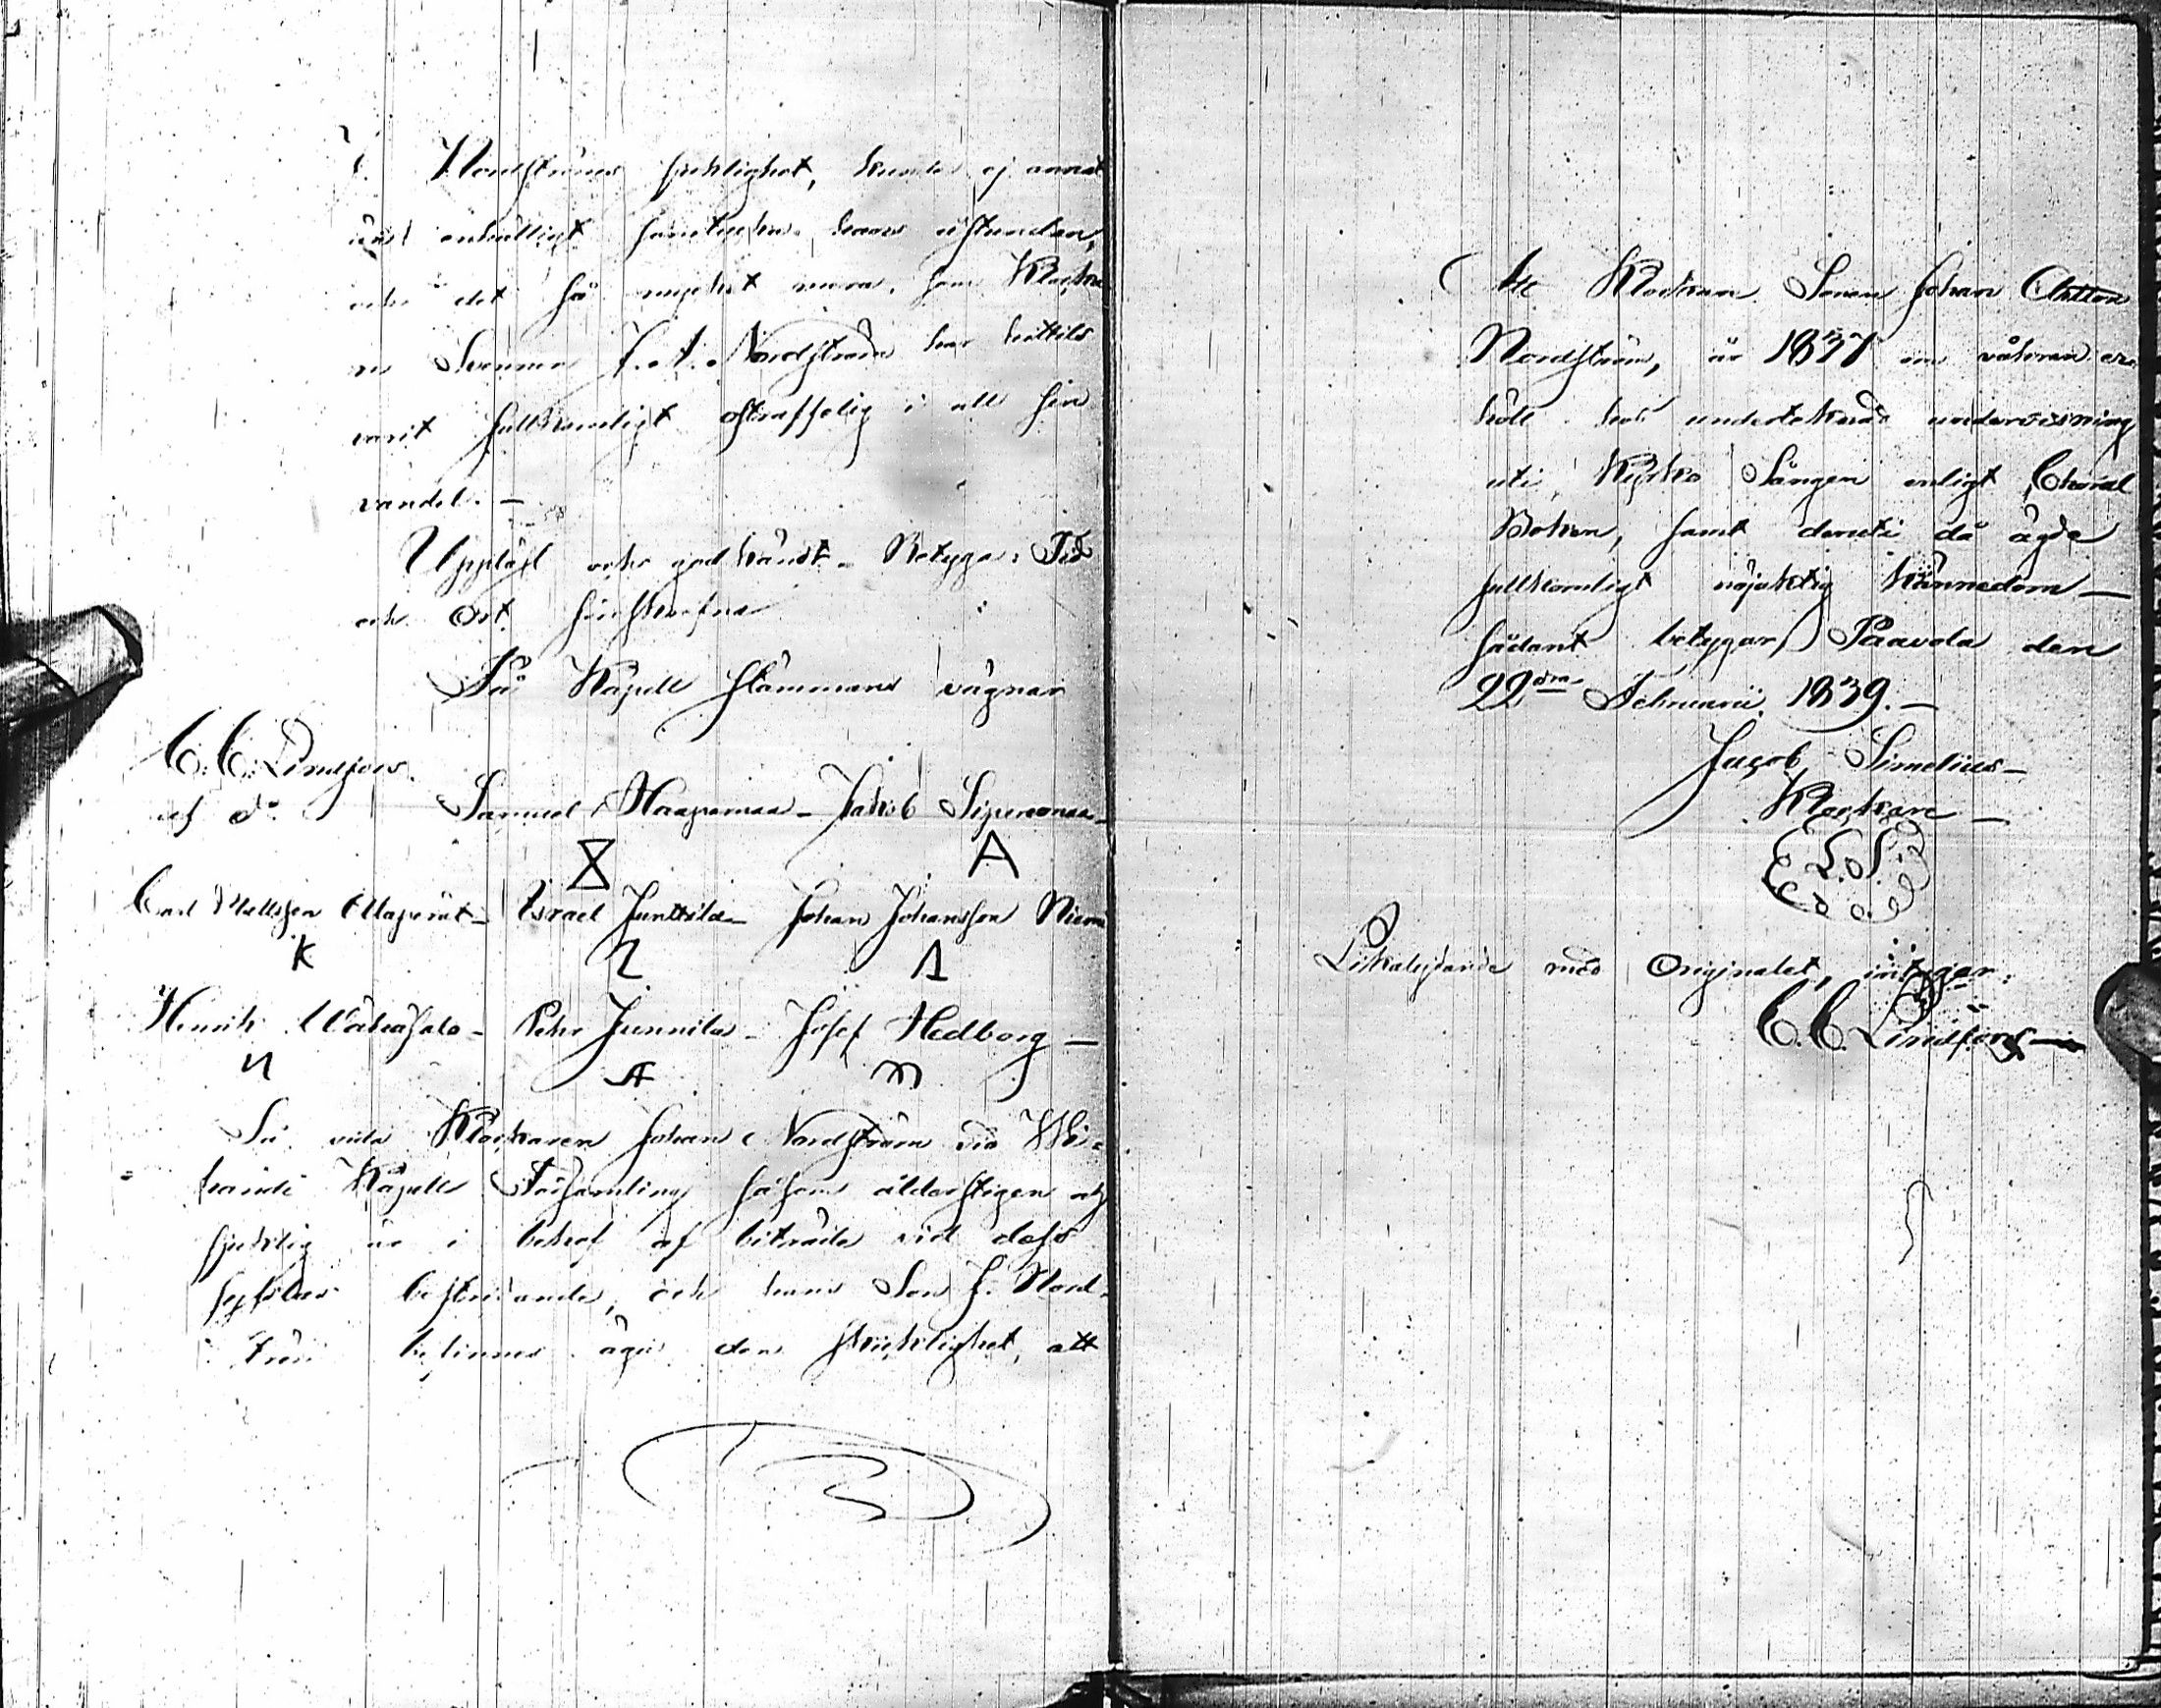 J. Nordströms sjuklighet, kunde ej annat
än enhälligt samtycka hans åstundan,
och det så mycket mera, som Klocka-
re Sonen J. A. Nordström har hittils
varit fullkomligt ostraffelig i all sin
vandel. —
Uppläst och godkändt. Betyga: Tid
och Ort förskrefne
På Kapell stämmans vägnar
C. C. Lindfors.
Samuel Haapamaa – Jakob Siperonmaa –
Carl Mattsson – Israel Junttila – Johan Johansson Niemi
K
Henrik – Pehr Junnila – Josef Hedborg —
Så vida Klockaren Johan Nordström vid Wi-
handi Kapells Församling såsom ålderstigen och
sjuklig är i behof af biträde vid dess
sysslas bestridande, och hans Son J. Nord-
ström befinnes äga den skicklighet, att
At Klockare Sonen Johan Anton
Nordström, år 1837 om våhren er-
höll hos underteknad undervisning
uti Kyrko Sången enligt Choral
Boken, samt deruti då ägde
fullkomligt nöjaktig kännedom —
sådant betygar, Paavola den
22dra Februarii 1839. —
Jacob Simelius –
Klockare —
L. S.
Likalydande med Originalet, intygar:
C. C. Lindfors —